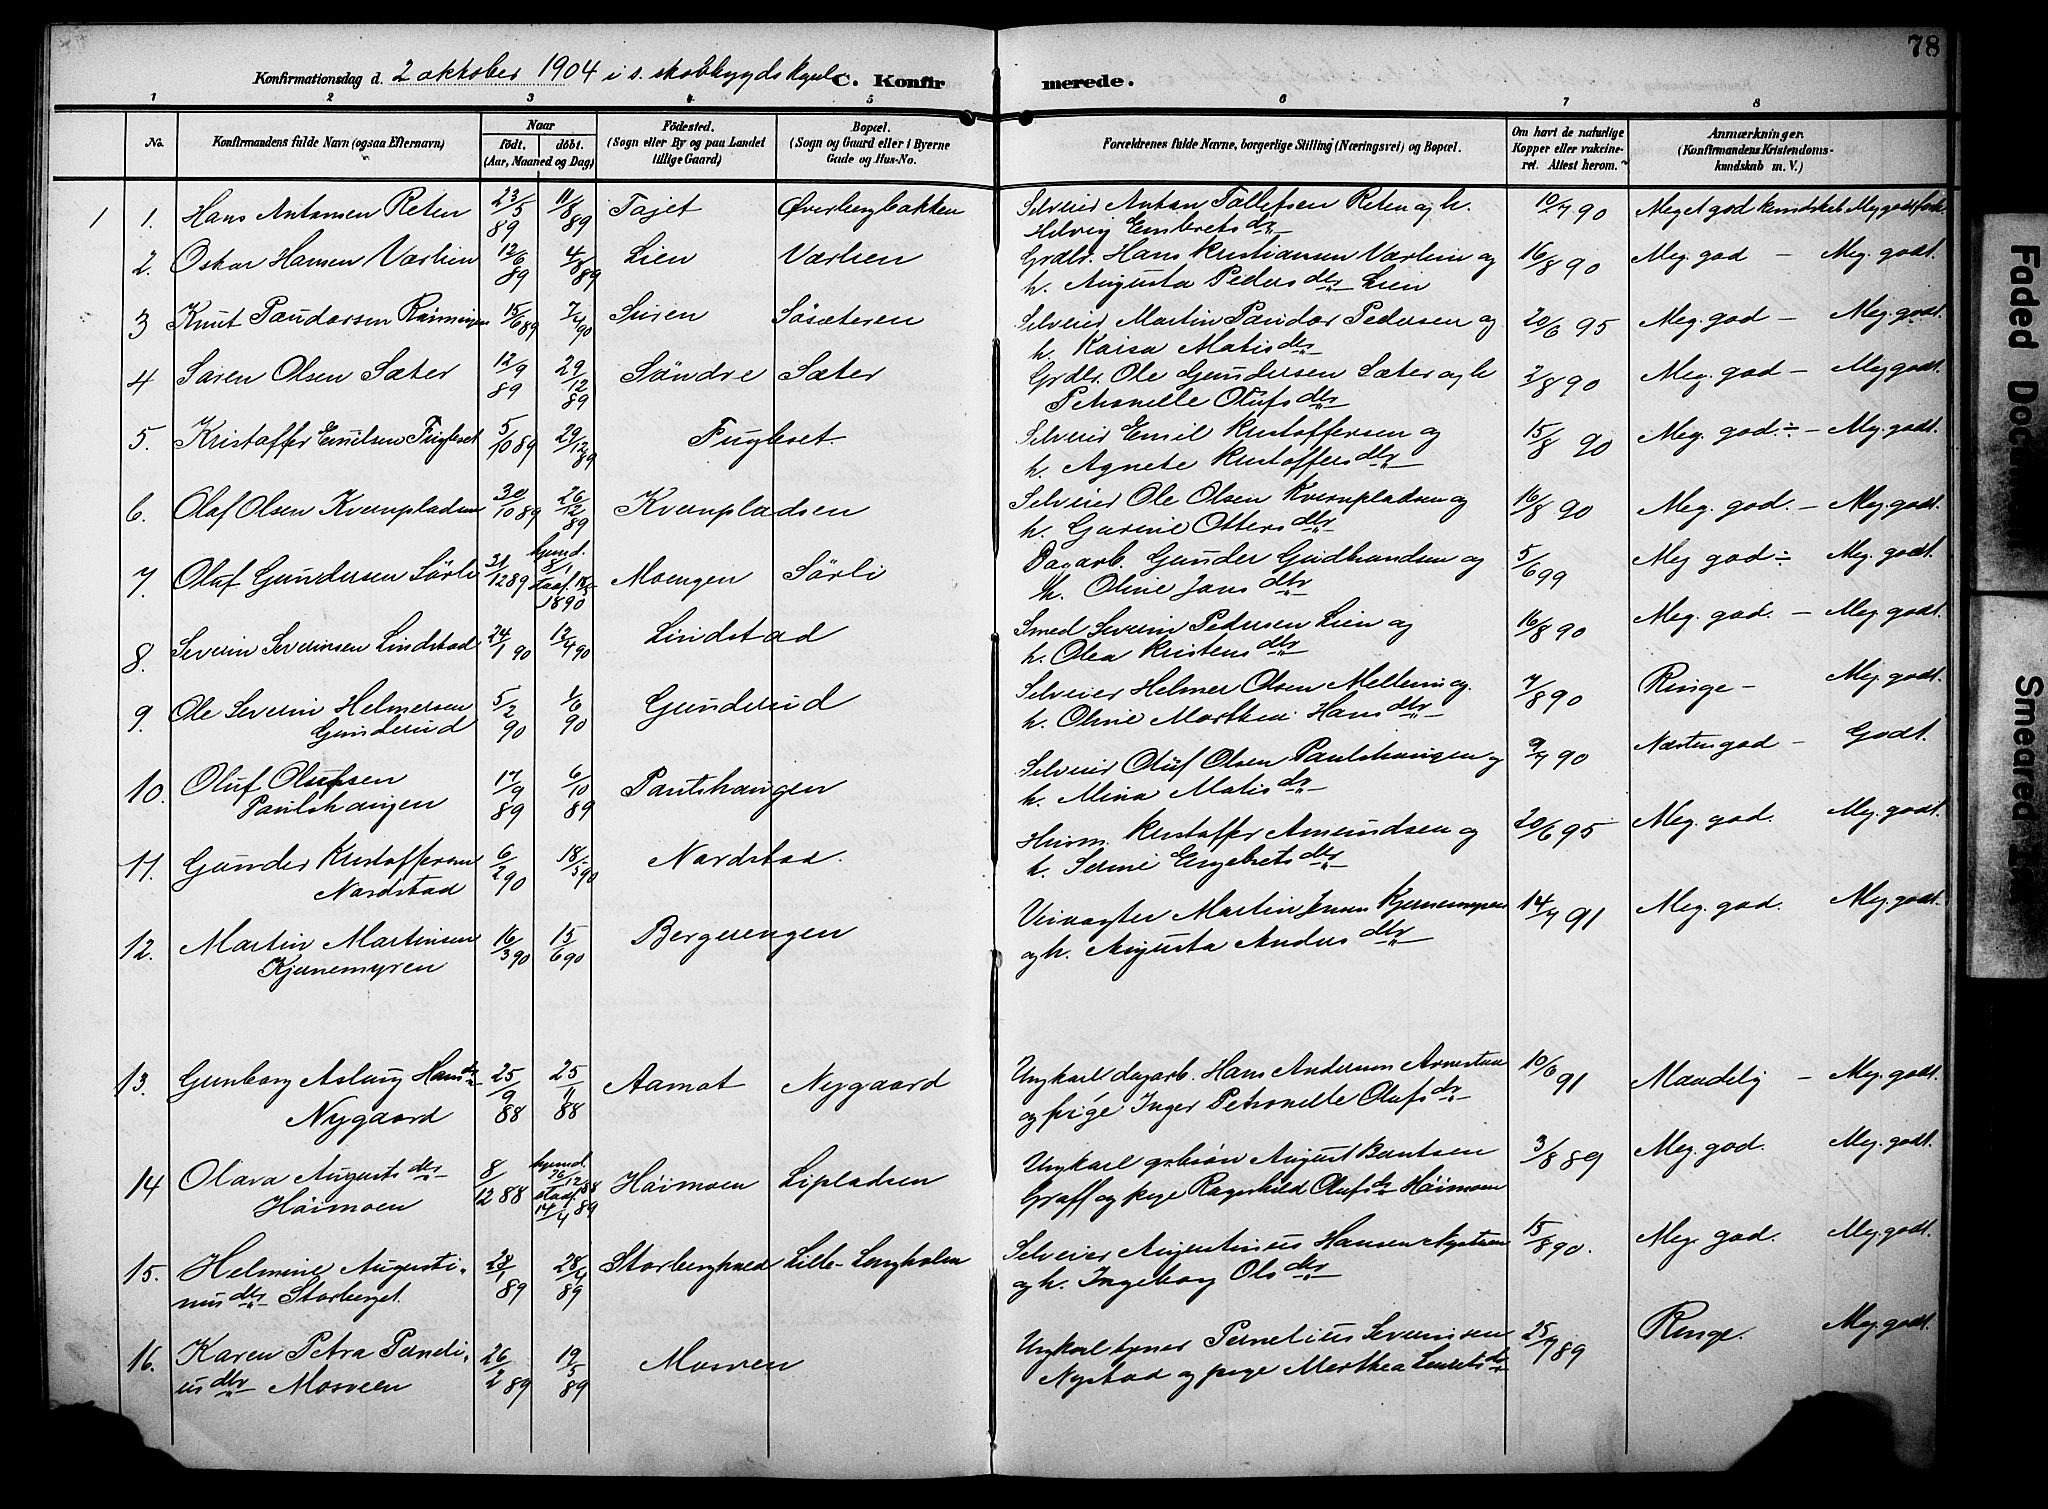 78
Konfirmationsdag d. 2 oktober 1904 i s. skobbygds C. Konfirmerede.
1 2 3 4 5 6 7 8
No.
Konfirmandens fulde Navn (ogsaa Efternavn)
Naar
födt. döbt.
(Aar, Maaned og Dag)
Födested.
(Sogn eller By og paa Landet tillige Gaard)
Bopæl.
(Sogn og Gaard eller i Byerne Gade og Hus-No.
Forældrenes fulde Navne, borgerlige Stilling (Næringsvei) og Bopæl.
Om havt de naturlige Kopper eller vakcineret. Attest herom.
Anmærkninger.
(Konfirmandens Kristendomskundskab m. V.)
1 1. Hans Antonsen Reten 23/5 89 11/8 89 Tajet Øverbergbakken Selveier Anton Tollefsen Reten og h. Helvig Embretsdtr 10/7 90 Meget god kundskab Meg godt
2. Oskar Hansen Værlien 12/6 89 4/8 89 Lien Værlien Grdbr. Hans Kristiansen Værlien og h. Augusta Pedersdtr Lien 16/8 90 Meg. god – Meg. godt.
3 Knut 15/6 89 7/4 90 Søsæteren Selveier Martin Pandor Pedersen og h. Kaisa Matisdtr 20/6 95 Meg. god – Meg. godt.
4 Søren Olsen Sæter 12/9 89 29/12 89 Söndre Sæter Grdbr. Ole Gundersen Sæter og h Petronelle Olufsdtr 7/8 90 Meg. god – Meg godt.
5. Kristoffer Emilsen Fugleset 5/10 89 29/12 89 Fugleset Selveier Emil Kristoffersen og h. Agnete Kristoffersdtr 15/8 90 Meg. god ÷ – Meg. godt.
6. Olaf Olsen Kvernpladsen 30/10 89 26/12 89 Kvernpladsen Selveier Ole Olsen Kvernpladsen og h. Gurine Ottersdtr 16/8 90 Meg. god. – Meg. godt.
7. Oluf Gundersen Sörli 31/12 89 hjemd. 1890 Moengen Sörli Dagarb. Gunder Gudbrandsen og h. Oline Jansdtr 5/6 99 Meg god ÷ Meg. godt.
8. Severin Severinsen Lindstad 24/1 90 13/4 90 Lindstad Smed Severin Pedersen Lien og h. Olea Kristensdtr 16/8 90 Meg. god. – Meg godt.
9. Ole Severin Helmersen Gunderud 5/2 90 1/6 90 Gunderud Selveier Helmer Olsen Mellem og h. Oline Marthea Hansdtr 7/8 90 Ringe – Meg. godt.
10. Oluf Olufsen Paulshaugen 17/9 89 6/10 89 Paulshaugen Selveier Oluf Olsen Paulshaugen og h. Mina Matisdtr 9/7 90 Næsten god – Godt.
11. Gunder Kristoffersen Nordstad 6/2 90 18/5 90 Nordstad. Husm. Kristoffer Amundsen og h. Serine Engebretsdtr 20/6 95 Meg. god. Meg. godt.
12. Martin Martinsen Kjernemyren 16/3 90 15/6 90 Bergerengen Veivogter Martin Jensen Kjernemyren og h. Augusta Andersdtr 14/7 91 Meg. god. Meg. godt.
13. Gunborg Aslaug Hansdtr Nygaard 25/9 88 25/11 88 Aamot Nygaard Ungkarl dagarb. Hans Andersen Arnestad og pige Inger Petronelle Olufsdtr 10/6 91 Maadelig – Meg. godt.
14 Olava Augustsdtr Höimoen 8/12 88 hjemd. 26/12 88 14/4 89 Höimoen Lipladsen Ungkarl grbsön August Bentsen Graff og pige Ragnhild Olufsdtr Höimoen 3/8 89 Meg. god. Meg. godt.
15. Helmine Augustinusdtr Storberget 23/1 89 28/4 89 Lille-Langholm Selveier Augustinius Hansen Nystuen og h. Ingeborg Olsdtr 15/8 90. Meg. god. Meg. godt.
16. Karen Petra Perneliusdtr Mosveen 26/2 89 19/5 89 Mosveen Ungkarl Pernelius Severinsen Nystad og pige Marthea Lauritsdtr 25/7 89 Ringe. Meg. godt.
Faded Document
Smeared Ink